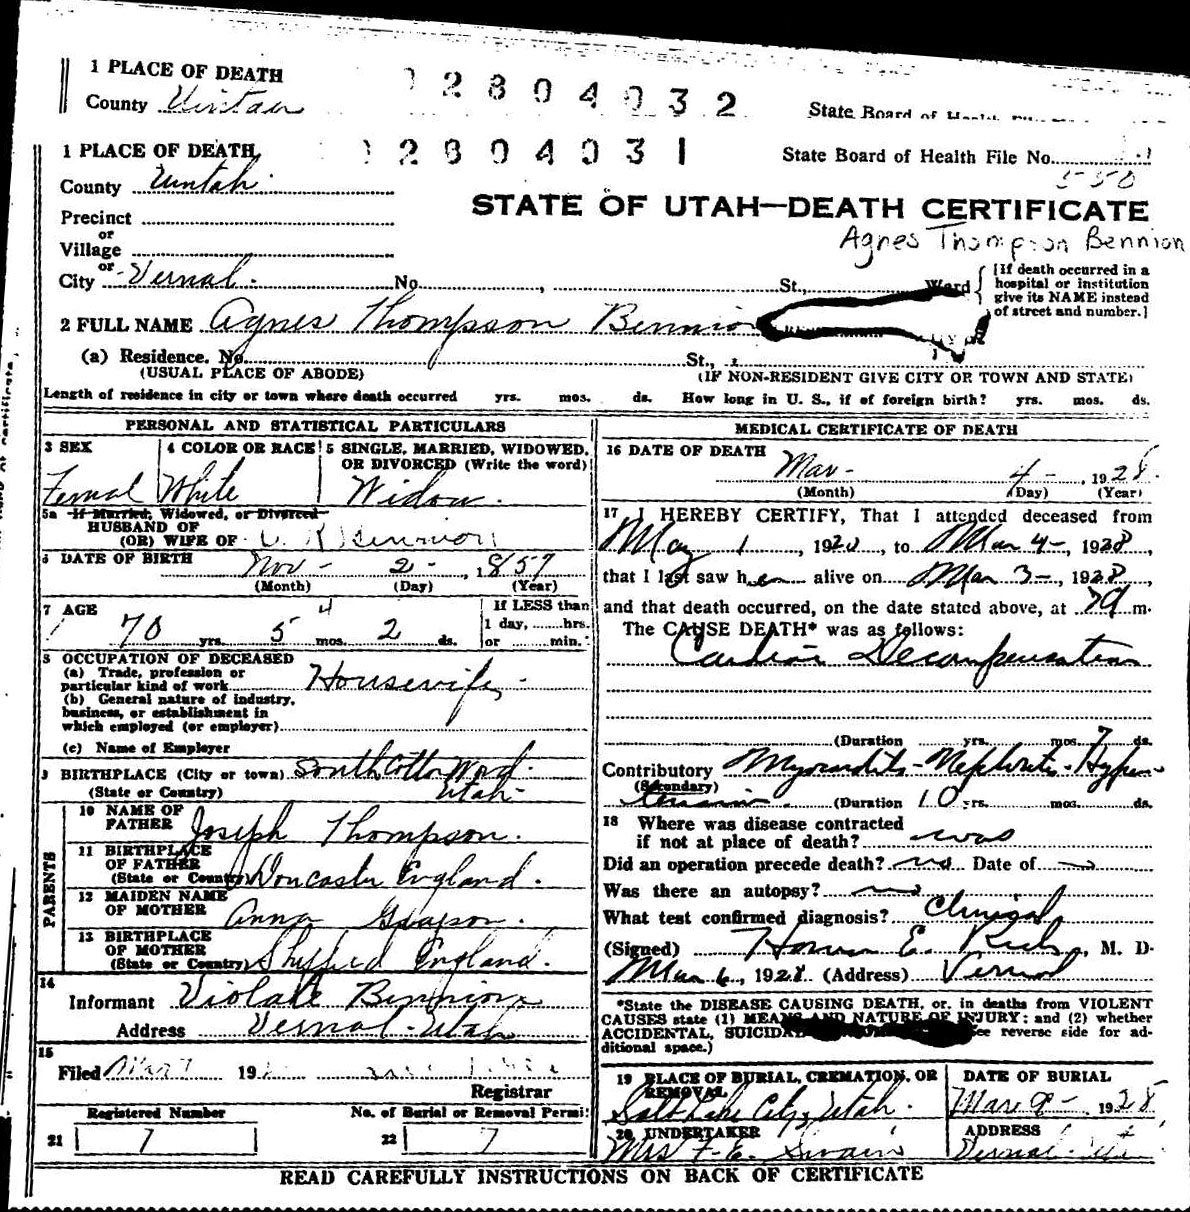 1 PLACE OF DEATH 2804032
County Uintah State Board of Health File
1 PLACE OF DEATH 2804031 State Board of Health File No.
County Uintah 550
STATE OF UTAH—DEATH CERTIFICATE
Precinct
or
Village
Agnes Thompson Bennion
or
City Vernal. No. , St., Ward
[If death occurred in a hospital or institution give its NAME instead of street and number.]
2 FULL NAME Agnes Thompson Bennion
(a) Residence. No. St.,
(USUAL PLACE OF ABODE) (IF NON-RESIDENT GIVE CITY OR TOWN AND STATE)
Length of residence in city or town where death occurred yrs. mos. ds. How long in U. S., if of foreign birth? yrs. mos. ds.
PERSONAL AND STATISTICAL PARTICULARS
3 SEX 4 COLOR OR RACE 5 SINGLE, MARRIED, WIDOWED,
OR DIVORCED (Write the word)
Femal White Widow.
5a If Married, Widowed, or Divorced
HUSBAND OF
(OR) WIFE OF Bennion
6 DATE OF BIRTH Nov - 2 - , 1857
(Month) (Day) (Year)
7 AGE 4 If LESS than
70 yrs. 5 mos. 2 ds. 1 day, hrs.
or min.
8 OCCUPATION OF DECEASED
(a) Trade, profession or
particular kind of work Housewife
(b) General nature of industry,
business, or establishment in
which employed (or employer)
(c) Name of Employer
9 BIRTHPLACE (City or town) South Cotto Ward.
(State or Country) Utah
PARENTS
10 NAME OF
FATHER Joseph Thompson.
11 BIRTHPLACE
OF FATHER
(State or Country) Doncaster England.
12 MAIDEN NAME
OF MOTHER Anna
13 BIRTHPLACE
OF MOTHER
(State or Country) England.
14
Informant Violate Bennion
Address Vernal - Utah
15
Filed Mar 7 192
Registrar
Registered Number No. of Burial or Removal Permit
21 7 22 7
MEDICAL CERTIFICATE OF DEATH
16 DATE OF DEATH Mar - 4 - , 1928
(Month) (Day) (Year)
17 I HEREBY CERTIFY, That I attended deceased from
May 1 , 1920 , to Mar 4 - , 1928 ,
that I last saw her alive on Mar 3 - , 1928 ,
and that death occurred, on the date stated above, at m.
The CAUSE DEATH* was as follows:
Cardiac Decompensation
(Duration yrs. mos. 7 ds.
Contributory Myocarditis - Nephritis - Hyper-
(Secondary)
tension. (Duration 10 yrs. mos. ds.
18 Where was disease contracted
if not at place of death?
Did an operation precede death? no Date of
Was there an autopsy? no
What test confirmed diagnosis? Clinical
(Signed) Homer E. Rich, M. D.
Mar 6, 1928 (Address) Vernal
*State the DISEASE CAUSING DEATH, or, in deaths from VIOLENT
CAUSES state (1) MEANS AND NATURE OF INJURY; and (2) whether
ACCIDENTAL, SUICIDAL see reverse side for ad-
ditional space.)
19 PLACE OF BURIAL, CREMATION, OR DATE OF BURIAL
REMOVAL
Salt Lake City, Utah. Mar 9 - 1928
20 UNDERTAKER ADDRESS
Mrs F. E. Swain Vernal
READ CAREFULLY INSTRUCTIONS ON BACK OF CERTIFICATE